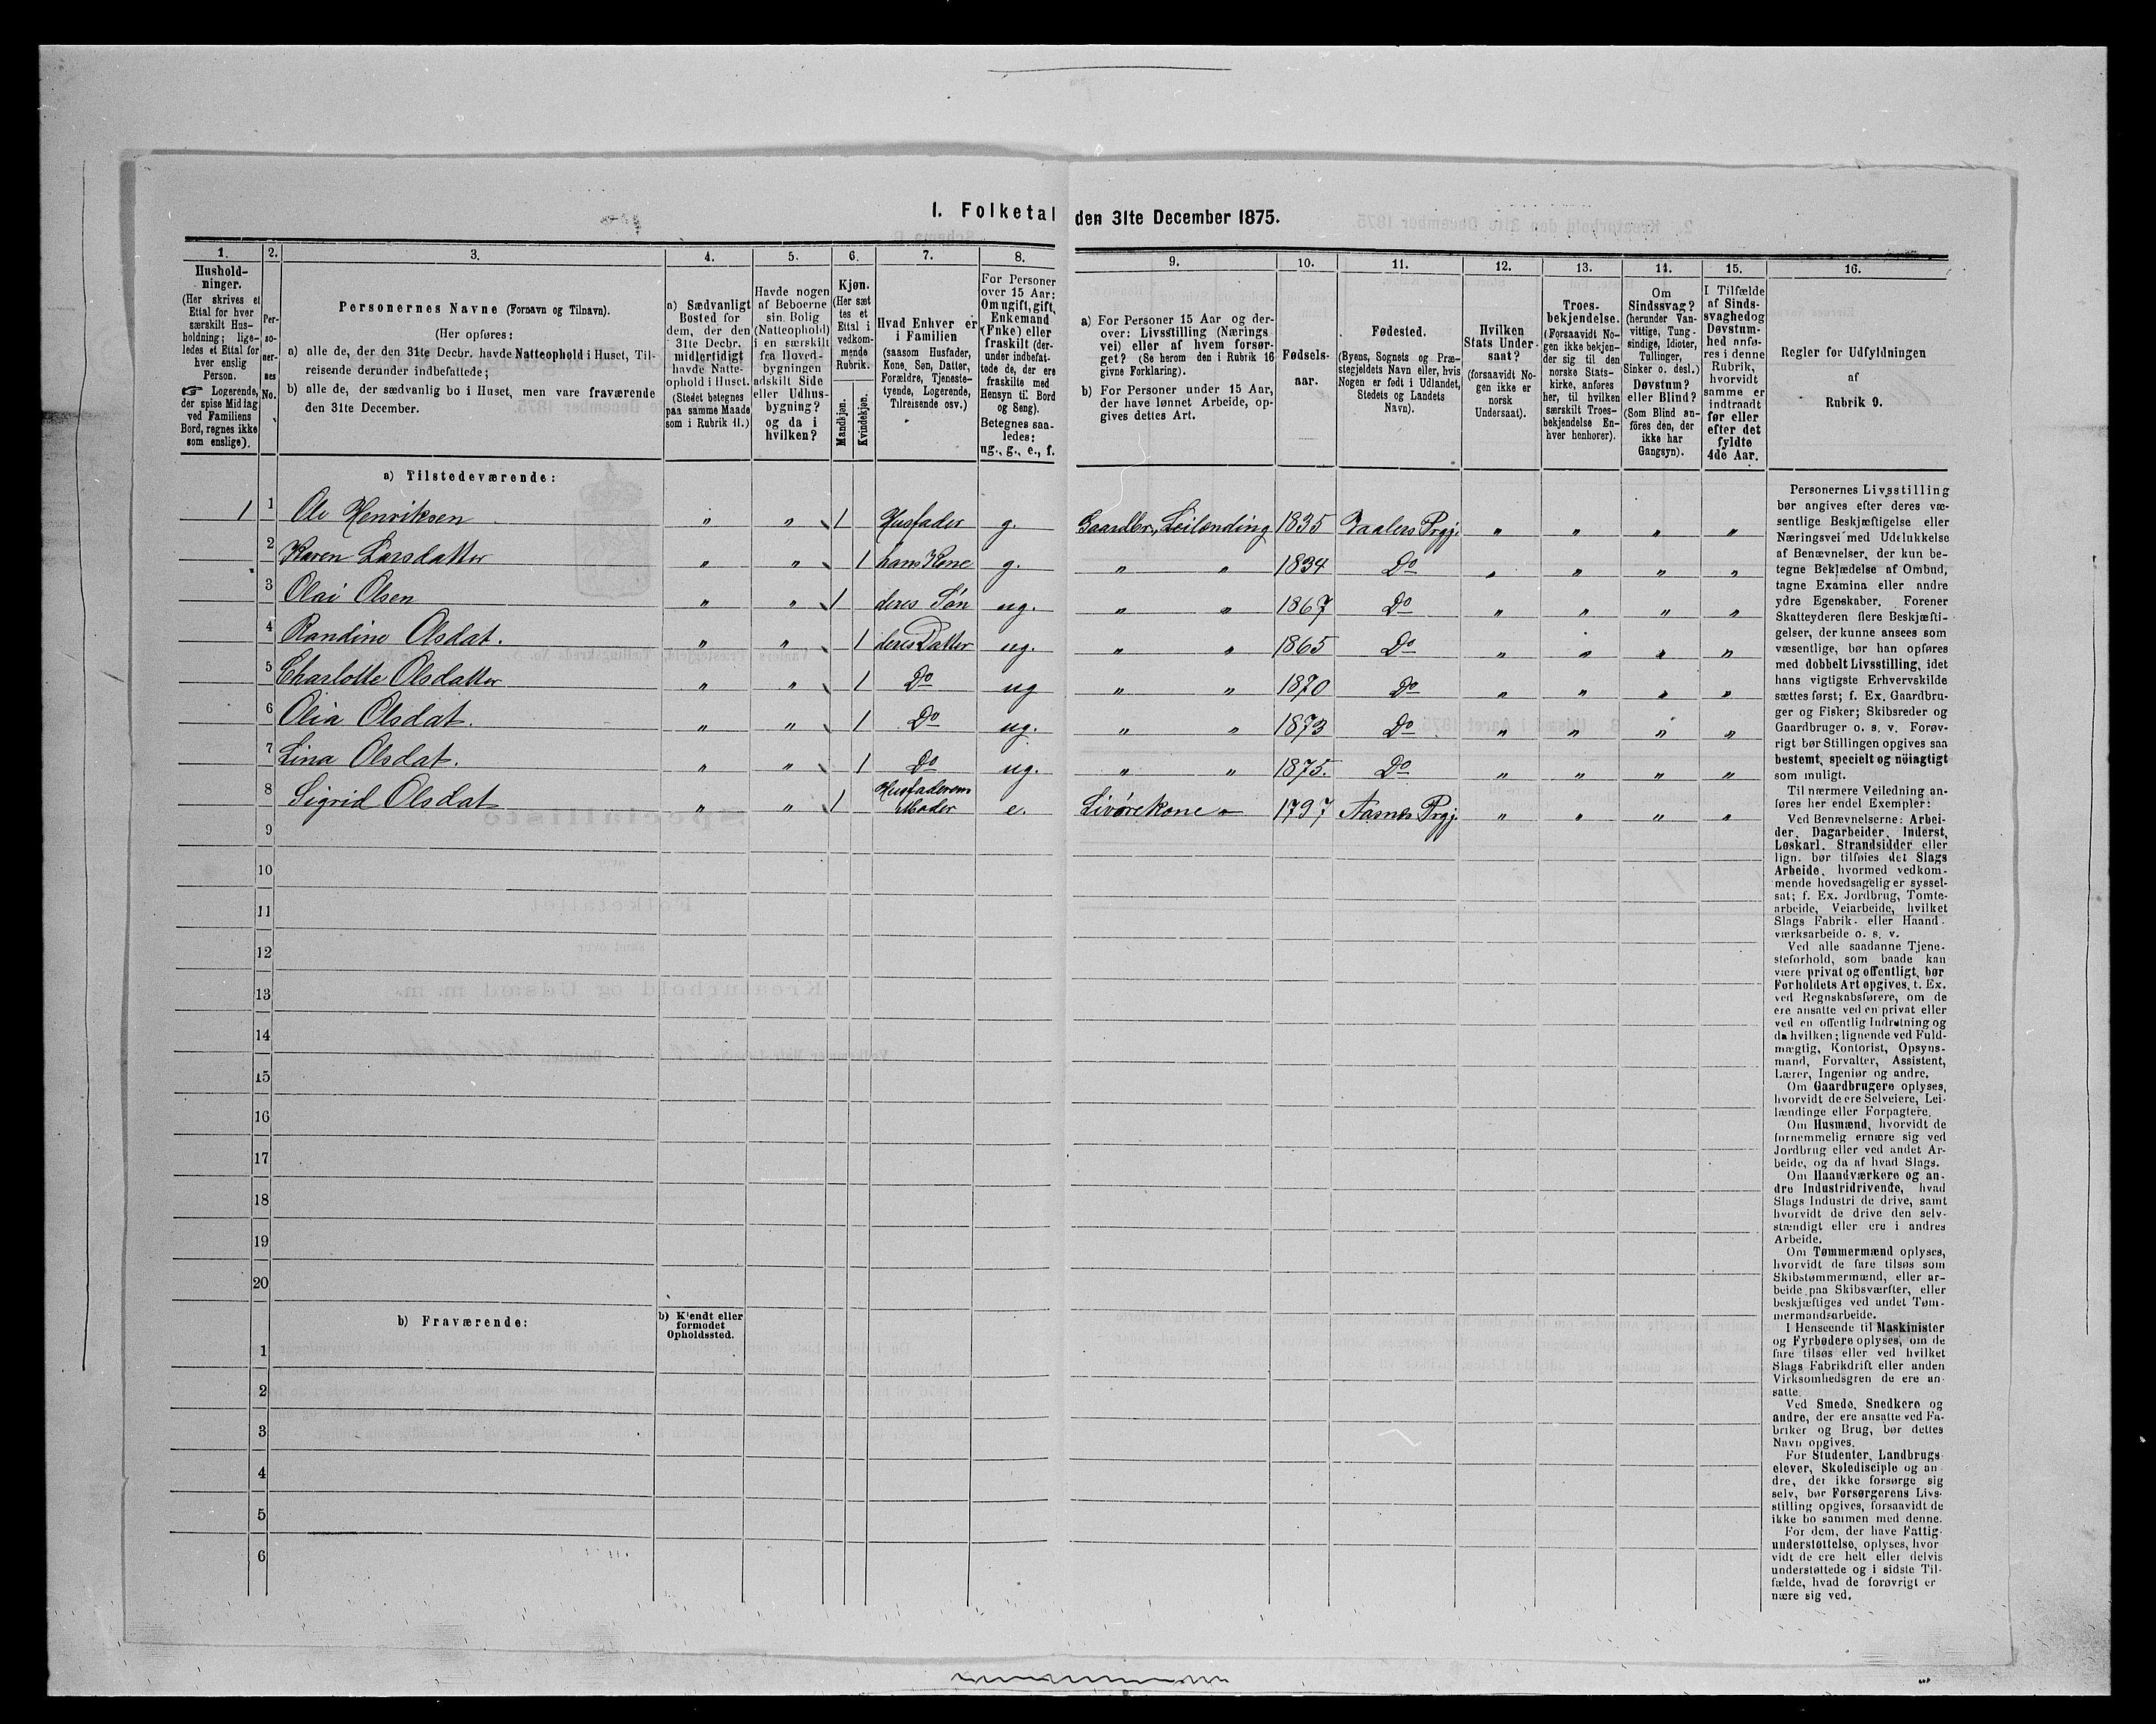 1. Folketal den 31te December 1875.
1. 2. 3. 4. 5. 6. 7. 8. 9. 10. 11. 12. 13. 14. 15. 16.
Hushold-
ninger.
(Her skrives et
Ettal for hver
særskilt Hus-
holdning; lige-
ledes et Ettal for
hver enslig
Person.
☞ Logerende,
der spise Middag
ved Familiens
Bord, regnes ikke
som enslige).
Per-
so-
ner-
nes
No.
Personernes Navne (Fornavn og Tilnavn).
(Her opføres:
a) alle de, der den 31te Decbr. havde Natteophold i Huset, Til-
reisende derunder indbefattede;
b) alle de, der sædvanlig bo i Huset, men vare fraværende
den 31te December.
a) Sædvanligt
Bosted for
dem, der den
31te Decbr.
midlertidigt
havde Natte-
ophold i Huset.
(Stedet betegnes
paa samme Maade
som i Rubrik 11.)
Havde nogen
af Beboerne
sin Bolig
(Natteophold)
i en særskilt
fra Hoved-
bygningen
adskilt Side
eller Udhus-
bygning?
og da i
hvilken?
Kjøn.
(Her sæt
tes et
Ettal i
vedkom-
mende
Rubrik.
Mandkjøn.
Kvindekjøn.
Hvad Enhver er
i Familien
(saasom Husfader,
Kone, Søn, Datter,
Forældre, Tjeneste-
tyende, Logerende,
Tilreisende osv.)
For Personer
over 15 Aar:
Om ugift, gift,
Enkemand
(Enke) eller
fraskilt (der-
under indbefat-
tede de, der ere
fraskilte med
Hensyn til Bord
og Seng).
Betegnes saa-
ledes:
ug., g., e., f.
a) For Personer 15 Aar og der-
over: Livsstilling (Nærings
vei) eller af hvem forsør-
get? (Se herom den i Rubrik 16
givne Forklaring).
b) For Personer under 15 Aar,
der have lønnet Arbeide, op-
gives dettes Art.
Fødsels-
aar.
Fødested.
(Byens, Sognets og Præ-
stegjeldets Navn eller, hvis
Nogen er født i Udlandet,
Stedets og Landets
Navn).
Hvilken
Stats Under-
saat?
(forsaavidt No-
gen ikke er
norsk
Undersaat).
Troes-
bekjendelse.
(Forsaavidt No-
gen ikke bekjen-
der sig til den
norske Stats-
kirke, anføres
her, til hvilken
særskilt Troes-
bekjendelse En-
hver henhører).
Om
Sindssvag?
(herunder Van-
vittige, Tung-
sindige, Idioter,
Tullinger,
Sinker o. desl.)
Døvstum?
eller Blind?
(Som Blind an-
føres den, der
ikke har
Gangsyn).
I Tilfælde
af Sinds-
svaghed og
Døvstum-
hed anfø-
res i denne
Rubrik,
hvorvidt
samme er
indtraadt
før eller
efter det
fyldte
4de Aar.
Regler for Udfyldningen
af
Rubrik 9.
a) Tilstedeværende:
1 1 Ole Henriksen " " 1 Husfader g. Gaardbr., Leilænding 1835 Vaalers Prgj. " " " "
2 Karen Larsdatter " " 1 hans Kone g. " " 1834 Do " " " "
3 Olai Olsen " " 1 deres Søn ug. " " 1867 Do " " " "
4 Randine Olsdat. " " 1 deres Datter ug. " " 1865 Do " " " "
5 Charlotte Olsdatter " " 1 Do ug " " 1870 Do " " " "
6 Olia Olsdat. " " 1 Do ug. " " 1873 Do " " " "
7 Lina Olsdat. " " 1 Do ug. " " 1875. Do " " " "
8 Sigrid Olsdat " " 1 Husfaderens Moder e. Livørekone 1797 Aasnes Prgj. " " " "
9
10
11
12
13
14
15
16
17
18
19
20
b) Fraværende:
b) Kjendt eller
formodet
Opholdssted.
1
2
3
4
5
6
Personernes Livsstilling
bør angives efter deres væ-
sentlige Beskjæftigelse eller
Næringsvei med Udelukkelse
af Benævnelser, der kun be-
tegne Beklædelse af Ombud,
tagne Examina eller andre
ydre Egenskaber. Forener
Skatteyderen flere Beskjæfti-
gelser, der kunne ansees som
væsentlige, bør han opføres
med dobbelt Livsstilling, idet
hans vigtigste Erhvervskilde
sættes først; f. Ex. Gaardbru-
ger og Fisker; Skibsreder og
Gaardbruger o. s. v. Forøv-
rigt bør Stillingen opgives saa
bestemt, specielt og nöiagtigt
som muligt.
Til nærmere Veiledning an-
føres her endel Exempler:
Ved Benævnelserne: Arbei-
der, Dagarbeider, Inderst,
Løskarl, Strandsidder eller
lign. bør tilføies det Slags
Arbeide, hvormed vedkom-
mende hovedsagelig er syssel-
sat; f. Ex. Jordbrug, Tomte-
arbeide, Veiarbeide, hvilket
Slags Fabrik- eller Haand-
værksarbeide o. s. v.
Ved alle saadanne Tjene-
steforhold, som baade kan
være privat og offentligt, bør
Forholdets Art opgives, t. Ex.
ved Regnskabsførere, om de
ere ansatte ved en privat eller
ved en offentlig Indretning og
da hvilken; lignende ved Fuld-
mægtig, Kontorist, Opsyns-
mand, Forvalter, Assistent,
Lærer, Ingeniør og andre.
Om Gaardbrugere oplyses,
hvorvidt de ere Selveiere, Lei-
lændinge eller Forpagtere.
Om Husmænd, hvorvidt de
fornemmelig ernære sig ved
Jordbrug eller ved andet Ar-
beide, og da af hvad Slags.
Om Haandværkere og an-
dre Industridrivende, hvad
Slags Industri de drive, samt
hvorvidt de drive den selv-
stændigt eller ere i andres
Arbeide.
Om Tømmermænd oplyses,
hvorvidt de fare tilsøs som
Skibstømmermænd, eller ar-
beide paa Skibsværfter, eller
beskjæftiges ved andet Tøm-
mermandsarbeide.
I Henseende til Maskinister
og Fyrbødere oplyses, om de
fare tilsøs eller ved hvilket
Slags Fabrikdrift eller anden
Virksomhedsgren de ere an-
satte.
Ved Smede, Snedkere og
andre, der ere ansatte ved Fa-
briker og Brug, bør dettes
Navn opgives.
For Studenter, Landbrugs-
elever, Skoledisciple og an-
dre, der ikke forsørge sig
selv, bør Forsørgerens Livs-
stilling opgives, forsaavidt de
ikke bo sammen med denne.
For dem, der have Fattig-
understøttelse, oplyses, hvor
vidt de ere helt eller delvis
understøttede og i sidste Til-
fælde, hvad de forøvrigt er
nære sig ved.